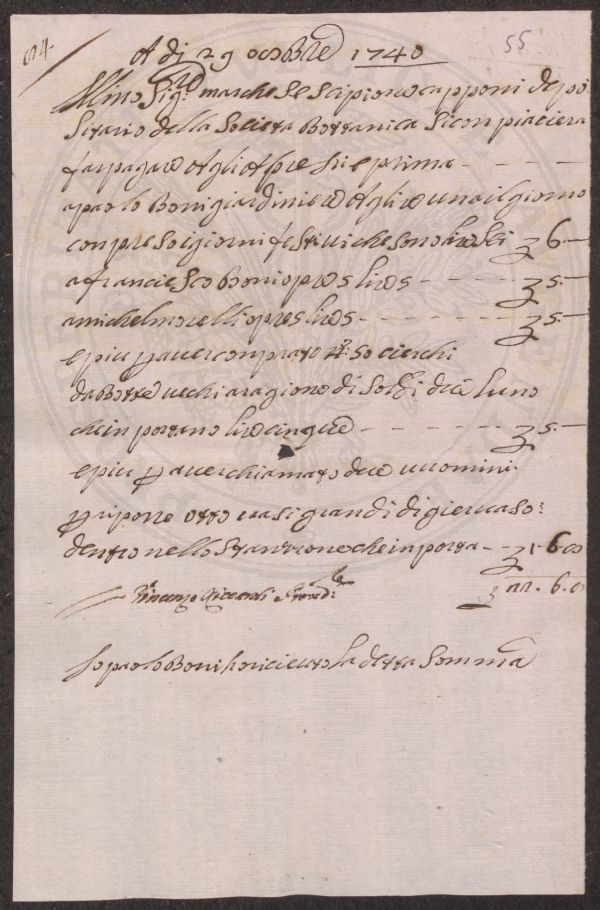 55
A di 29 ottobre 1740
Ill.mo Sig.re marchese Scipione capponi depo
sitario della Società Bottanica Si conpiacierà
far pagare Agli Apre Sri e prima
a paolo Boni giardiniere A lire una il giorno
conpreso i giorni festivi che sono lire sei 6
a francesco Boni opre 5 lire 5 5
a michel morelli opre 5 lire 5 5
e piu p aver conprato N.o 50 cierchi
da Botte vechi a ragione di soldi due l uno
che in portano lire cinque 5
e piu p aver chiamato due uomini
p riporre otto vasi grandi di giervaso
dentro nello stanzione che in porta 1 6
22. 6.
Vincenzo Riccardi Proved.re
Io paolo Boni ho ricieuto la detta Somma